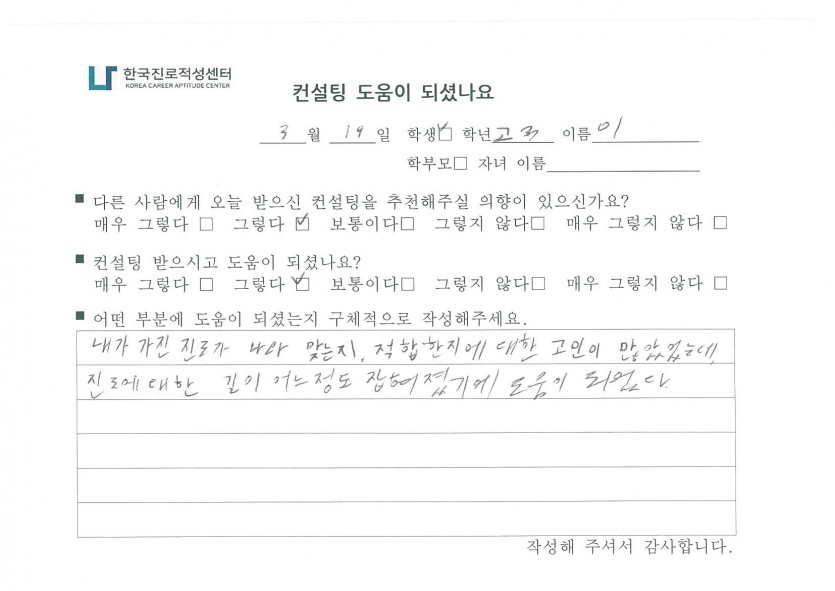 한국진로적성센터
KOREA CAREER APTITUDE CENTER
컨설팅 도움이 되셨나요
3월 19일 학생☑ 학년 고3 이름 이
학부모□ 자녀 이름
■ 다른 사람에게 오늘 받으신 컨설팅을 추천해주실 의향이 있으신가요?
매우 그렇다 □ 그렇다 ☑ 보통이다□ 그렇지 않다□ 매우 그렇지 않다 □
■ 컨설팅 받으시고 도움이 되셨나요?
매우 그렇다 □ 그렇다 ☑ 보통이다□ 그렇지 않다□ 매우 그렇지 않다 □
■ 어떤 부분에 도움이 되셨는지 구체적으로 작성해주세요.
내가 가진 진로가 나와 맞는지, 적합한지에 대한 고민이 많았었는데,
진로에 대한 길이 어느정도 잡혀졌기에 도움이 되었다.
작성해 주셔서 감사합니다.